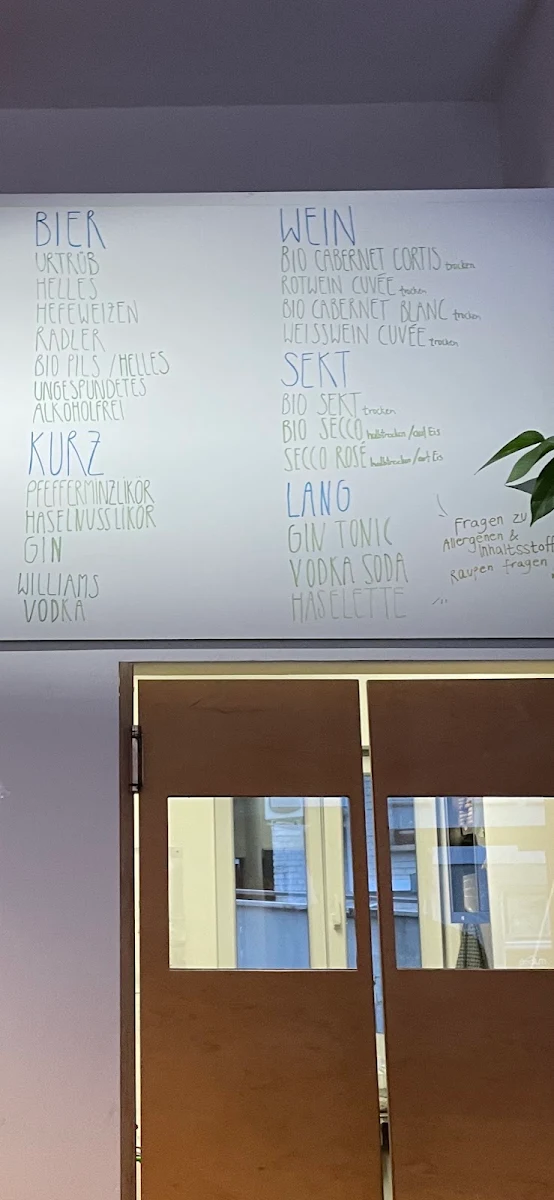 BIER
URTRÜB
HELLES
HEFEWEIZEN
RADLER
BIO PILS /HELLES
UNGESPUNDETES
ALKOHOLFREI
KURZ
PFEFFERMINZLIKÖR
HASELNUSSLIKÖR
GIN
WILLIAMS
VODKA
WEIN
BIO CABERNET CORTIS trocken
ROTWEIN CUVÉE trocken
BIO CABERNET BLANC trocken
WEISSWEIN CUVÉE trocken
SEKT
BIO SEKT trocken
BIO SECCO halbtrocken/auf Eis
SECCO ROSÉ halbtrocken/auf Eis
LANG
GIN TONIC
VODKA SODA
HASELETTE
Fragen zu
Allergenen &
Inhaltsstoff
Raupen fragen